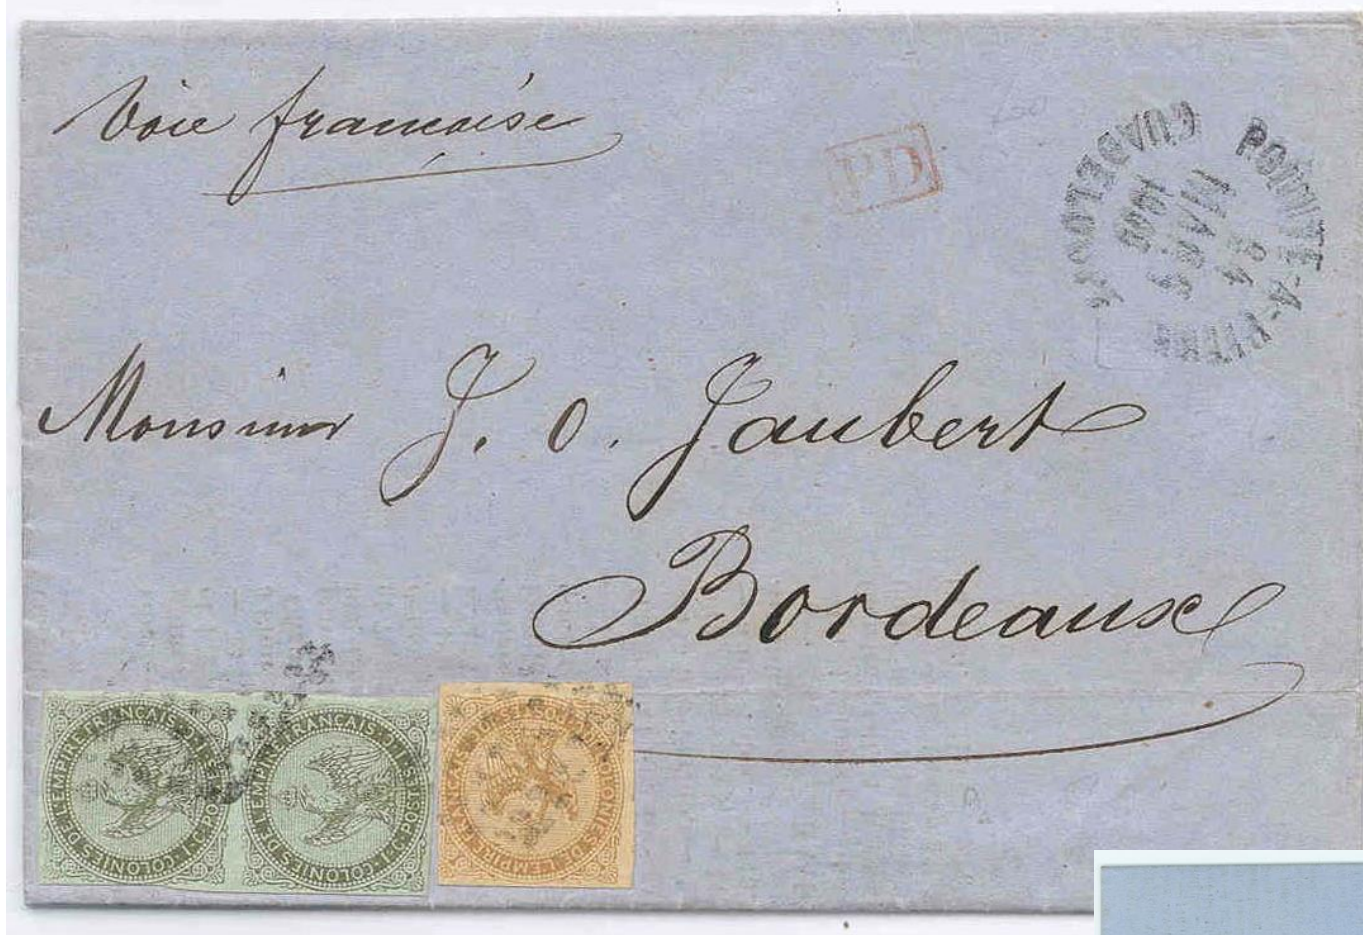 Voie française
PD
GUADELOUPE
POINTE-A-PITRE
24
MARS
Monsieur J. O. Jaubert
Bordeaux
COLONIES DE L'EMPIRE FRANÇAIS POSTES
COLONIES DE L'EMPIRE FRANÇAIS POSTES
COLONIES DE L'EMPIRE FRANÇAIS POSTES